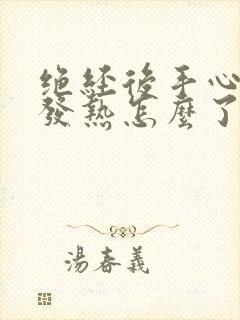 绝經後手心
發熱怎麼了
湯春義